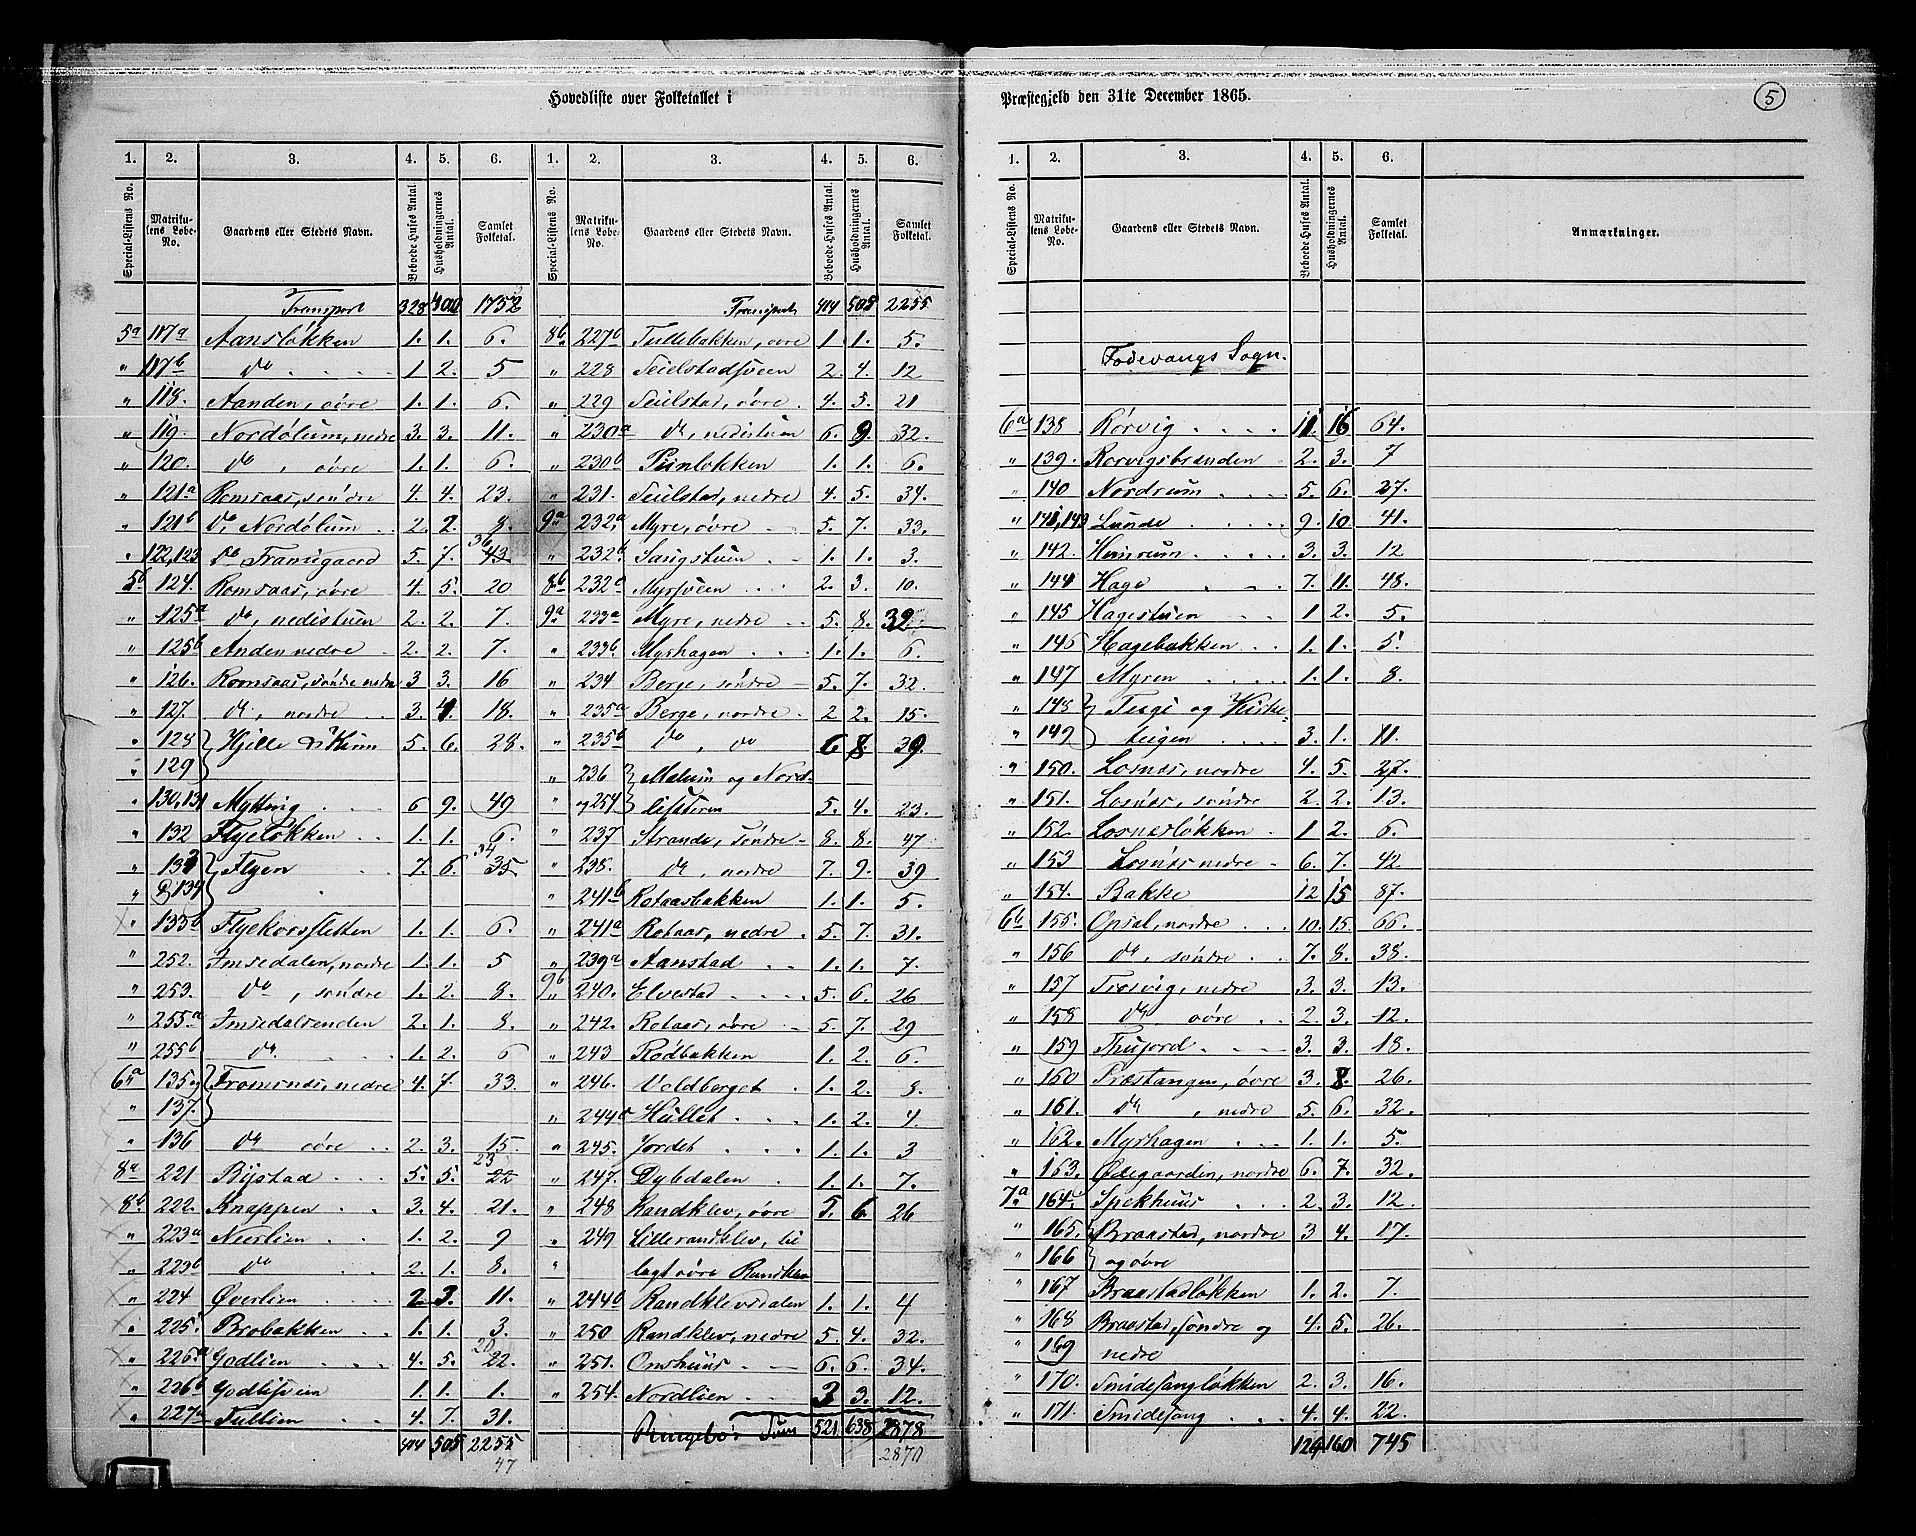 Hovedliste over Folketallet i
1. 2. 3. 4. 5. 6.
Special-Listens No. Matrikulens Løbe-No. Gaardens eller Stedets Navn. Beboede Huses Antal. Husholdningernes Antal. Samlet Folketal.
Transport 328 400 1752
5a 117a Aansløkken 1. 1. 6.
" 117b do 1 2. 5
" 118. Aanden, øvre 1. 1. 6.
" 119. Nordølum, nedre 3. 3. 11.
" 120. do, øvre 1. 1. 6.
" 121a Romsaas, søndre 4. 4. 23.
" 121b do Nordølum 2. 2. 8.
" 122,123 do Framigaard 5. 7. 36 43
5b 124. Romsaas, øvre 4. 5. 20
" 125a do, nedistuen 2. 2. 7.
" 125b Anden nedre 2. 2. 7.
" 126. Romsaas, søndre nedre 3 3. 16
" 127. do, nordre 3. 4. 18.
" 128 Hjelle 5. 6. 28.
" 129
" 130,131 Mytting 6 9. 49
" 132 Flyeløkken 1. 1. 6.
" 133 Flyen 7. 6. 34 35
" & 134
" 133b Flyekorsstetten 1. 1. 6.
" 252. Imsedalen, nordre 1. 1. 5
" 253. do, søndre 1. 2. 8.
" 255a Imsedalsenden 2. 1. 8.
" 255b do. 1. 2. 6
6a 135 og Fromsnæs, nedre 4. 7. 33.
" 137.
" 136 do øvre 2. 3. 15.
8a 221 Bystad 5. 5. 23 22
8b 222. Knappen 3. 4. 21.
" 223a Neerlien 1. 2. 9
" 223b do 2. 1. 8.
" 224 Øverlien 2. 3. 11.
" 225. Brobakken 1. 1. 3.
" 226a Godlien 4. 5. 20 22.
" 226b Godlisveen 1. 1. 1.
" 227a Tullien 4. 7. 31.
404 505 2255
47
1. 2. 3. 4. 5. 6.
Special-Listens No. Matrikulens Løbe-No. Gaardens eller Stedets Navn. Beboede Huses Antal. Husholdningernes Antal. Samlet Folketal.
Transport 404 505 2255
8b 227b Tullebakken, øvre 1. 1. 5.
" 228 Seielstadsveen 2. 4. 12
" 229 Seielstad, øvre 4. 5. 21
" 230a do, nedistuen 6. 9. 32.
" 230b Piinløkken 1. 1. 6.
" 231. Seielstad, nedre 4. 5. 34.
9a 232a Myre, øvre 5. 7. 33.
" 232b Sangstuen 1. 1. 3.
8b 232a Myrsveen 2. 3. 10.
9a 233a Myre, nedre 5. 8. 32.
" 233b Myrhagen 1. 1. 6.
" 234 Berge, søndre 5. 7. 32.
" 235a Berge, nordre 2 2. 15.
" 235b do, do 6 8. 39.
" 236 Mælum og Nord-
" og 254 listeren 5. 4. 23.
" 237 Strande, søndre 8. 8. 47
" 238. do, nordre 7. 9. 39
" 241b Rotaasbakken 1. 1. 5.
" 241a Rotaas, nedre 5. 7. 31.
" 239a Aanstad 1. 1. 7.
9b 240. Elvestad 5. 6. 26
" 242. Rotaas, øvre 5. 7. 29
" 243 Rødbakken 1. 2. 6.
" 246. Voldberget 1. 2. 8.
" 244c Hullet 1. 2. 4.
" 245. Jordet 1. 1. 3
" 247. Dybdalen 1. 1. 7.
" 248 Randklev, øvre 5. 6. 26
" 249 Lillerandklev, til
" lagt øvre Randklev
" 244b Randklevsdalen 1. 1. 4
" 250 Randklev, nedre 5. 4. 32.
" 251. Onshuus 6. 6. 34.
" 254. Nordlien 3 3. 12.
Ringebo's Sum 521 638 2878
2870
Præstegjeld den 31te December 1865.
5
1. 2. 3. 4. 5. 6.
Special-Listens No. Matrikulens Løbe-No. Gaardens eller Stedets Navn. Beboede Huses Antal. Husholdningernes Antal. Samlet Folketal. Anmærkninger.
Fodevangs Sogn.
6a 138 Rørvig 11. 16 64.
" 139. Rørvigsbrænden 2. 3. 7
" 140 Nordrum 5. 6. 27.
" 141,143 Lunde 9. 10 41.
" 142. Hemrum 3. 3. 12
" 144 Hage 7. 11. 48.
" 145 Hagestuen 1 2. 5.
" 146 Hagebakken 1. 1. 5
" 147 Myren 1. 1. 8.
" 148 Teige og Kirke-
" 149 teigen 3. 1. 11.
" 150. Losnæs, nordre 4. 5. 27.
" 151. Losnæs, søndre 2. 2. 13.
" 152. Losnæsløkken 1 2. 6.
" 153 Losnæs nedre 6. 7. 42
" 154. Bakke 12 15 87.
6b 155. Opsal, nordre 10. 15. 66.
" 156 do, søndre 7. 8. 38.
" 157 Trosvig, nedre 3. 3. 13.
" 158 do øvre 2. 3. 12.
" 159 Thujord 3. 3. 18.
" 160 Præstangen, øvre 3. 8. 26.
" 161. do, nedre 5. 6. 32.
" 162. Myrhagen 1. 1. 5.
" 163. Ødegaarden, nordre 6. 7. 32.
7a 164 Spekhuus 2. 3. 12
" 165. Braastad, nordre 3 4. 17.
" 166 og øvre
" 167 Braastadløkken 1. 2. 7.
" 168 Braastad, søndre og 4. 5. 26.
" 169 nedre
" 170. Smidesangløkken 2. 3. 16.
" 171. Smidesang 4. 4. 22.
129 160 745